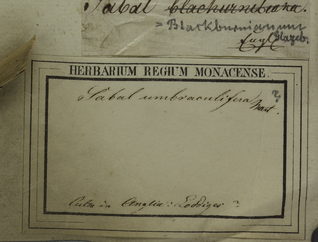 Sabal blackurneiana.
= Blackburnianum
Glazeb.
HERBARIUM REGIUM MONACENSE.
Sabal umbraculifera Mart.
?
Culta in Anglia: Loddiges